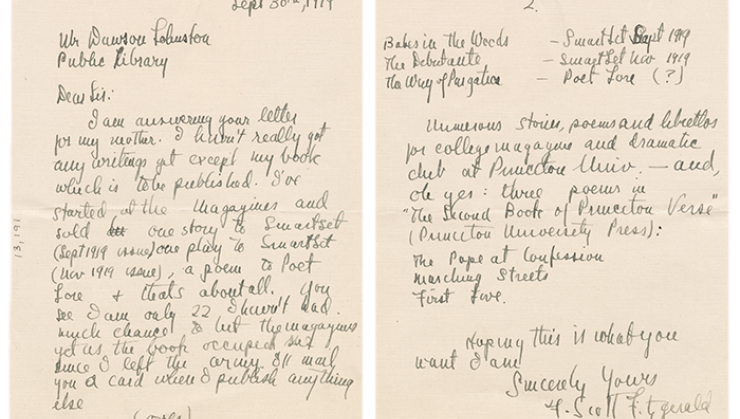 Sept 30th, 1919
Mr Dawson Johnston
Public Library
Dear Sir:
I am answering your letter
for my mother. I havn't really got
any writings yet except my book
which is to be published. I've
started at the magazines and
sold one story to Smartset
(Sept 1919 issue) one play to Smartset
(Nov 1919 issue), a poem to Poet
Lore + thats about all. You
see I am only 22 I havn't had
much chance to hit the magazines
yet as the book occupied me
since I left the army. I'll mail
you a card when I publish anything
else
(over)
13,191
2.
Babes in the Woods — Smart Set Sept 1919
The Debutante — Smart Set Nov 1919
The Way of Purgation — Poet Lore (?)
Numerous stories, poems and librettos
for college magazine and dramatic
club at Princeton Univ. — and,
oh yes: three poems in
"The Second Book of Princeton Verse"
(Princeton University Press):
The Pope at Confession
Marching Streets
First Love.
Hoping this is what you
want I am
Sincerely Yours
F. Scott Fitzgerald